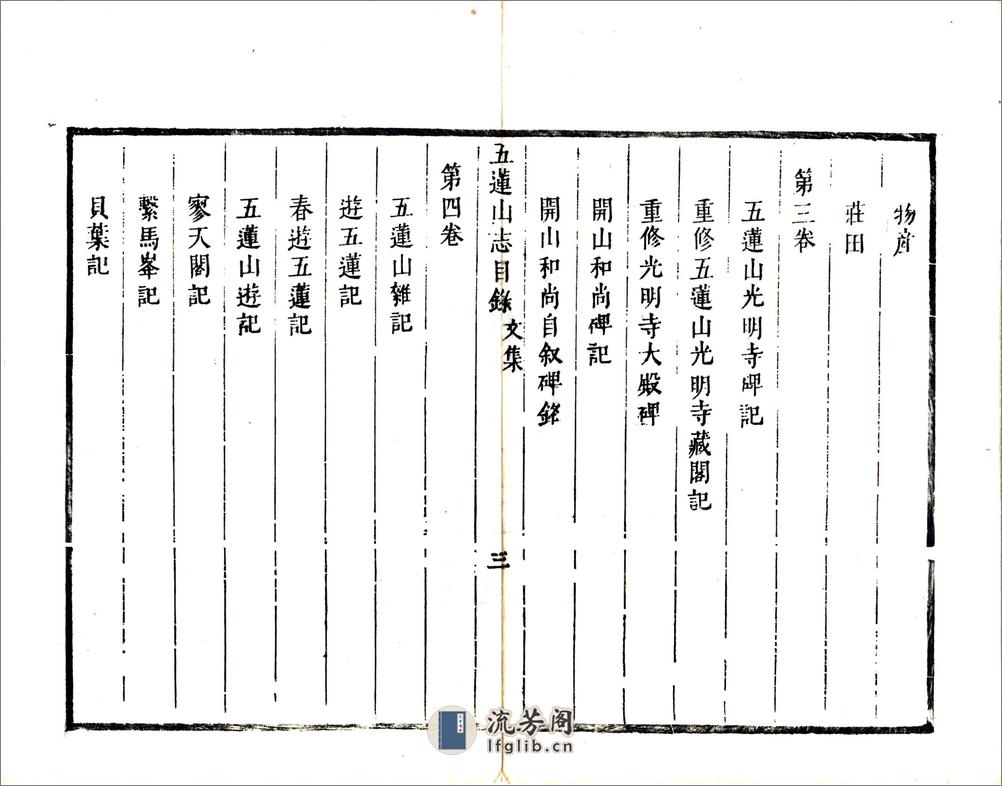 物産
莊田
第三卷
五蓮山光明寺碑記
重修五蓮山光明寺藏閣記
重修光明寺大殿碑
開山和尚碑記
開山和尚自叙碑銘
五蓮山志目錄 文集
三
第四卷
五蓮山雜記
遊五蓮記
春遊五蓮記
五蓮山遊記
寥天閣記
繫馬峯記
貝葉記
流芳阁
lfglib.cn